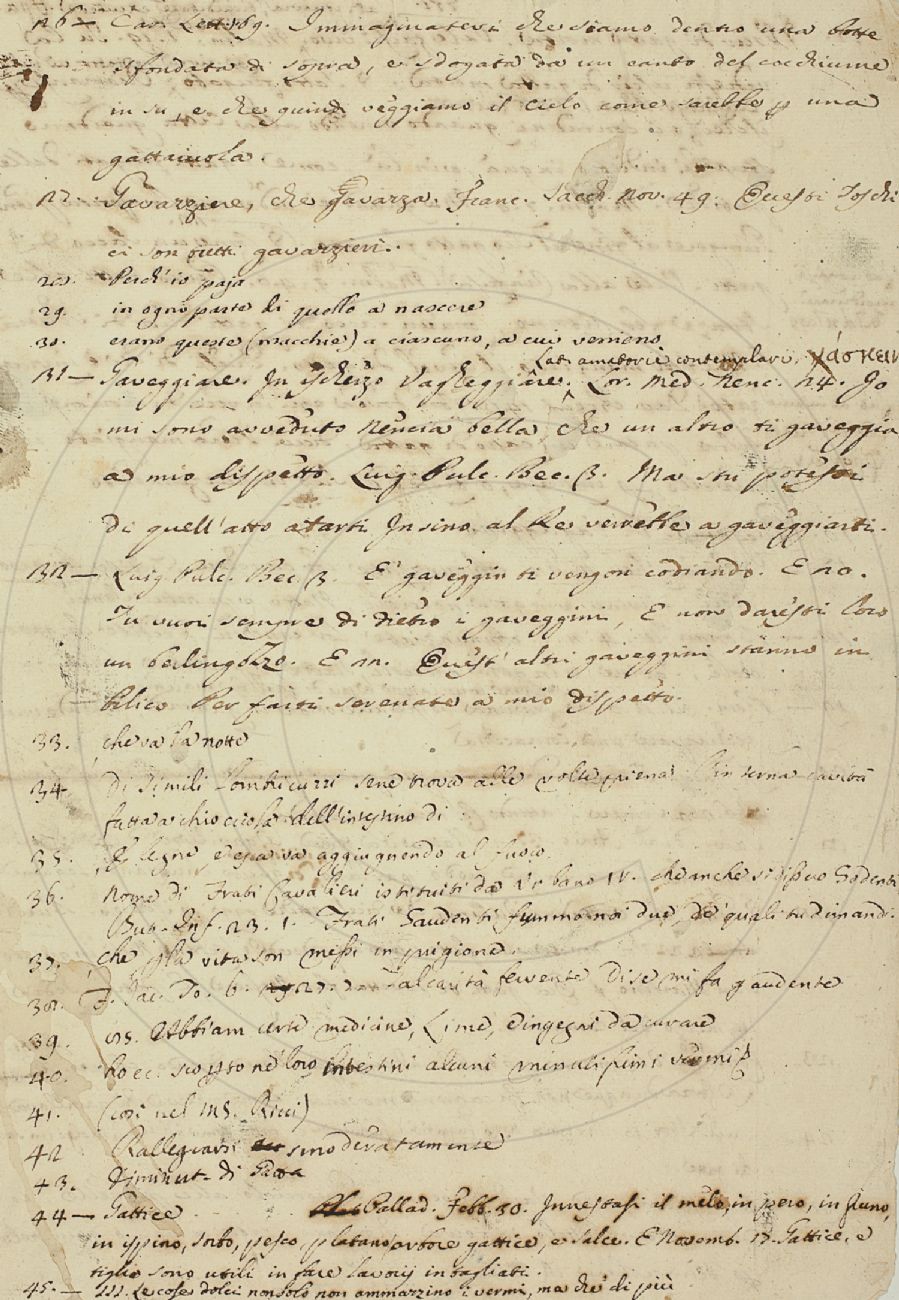 126 — Car. Lett. 169. Immaginatevi che siamo dentro una botte
sfondata di sopra, e sdogata da un canto del cocchiume
in su, e che quindi veggiamo il cielo come sarebbe p una
gattaiuola.
127. Gavazziere, che Gavazza. Franc. Sacch. Nov. 49. Questi Toschi
ci son tutti gavazzieri.
28. Perch'io paja
29. in ogni parte di quello a nascere
30. erano queste (macchie) a ciascuno, a cui venieno
Lat. amatorie contemplari, χάσκειν
131 — Gaveggiare. In ischerzo Vagheggiare. Lor. Med. Nenc. 24. Io
mi sono avveduto Nencia bella, che un altro ti gaveggia
a mio dispetto. Luig. Pulc. Bec. 3. Ma stu potessi
di quell'atto atarti Insino al Re verrebbe a gaveggiarti.
132 — Luig. Pulc. Bec. 3. E' gaveggin ti vengon codiando. E 20.
Tu vuoi sempre di dietro i gaveggini, E non daresti loro
un berlingozzo. E 21. Quest' altri gaveggini stanno in
bilico Per farti serenate a mio dispetto.
33. che va la notte
34. Di simili lombricuzzi sene trova alle volte piena l'interna cavità
fatta a chiocciola dell'intestino di
35. legne, e essa va aggiugnendo al fuoco
36. Nome di Frati Cavalieri istituiti da Urbano IV. che anche si disero Godenti
But. Inf. 23. 1. Frati Gaudenti fummo noi due, de' quali tu dimandi.
37. che p la vita son messi in prigione.
38. F. Jac. To. 6. 27. al carità fervente di se mi fa gaudente
39. Abbiam certe medicine, Lime, e ingegni da cavare
40. ho ec. scorsto ne' loro intestini alcuni minutissimi vermi
41. (così nel ms. Ricci)
42 Rallegrarsi smoderatamente
43. Diminut. di Gava
44 — Gattice Pallad. Febb. 30. Innestasi il melo, in pero, in pruno,
in ispino, sorbo, pesco, platano, arbore gattice, e salce. E Novemb. 15. Gattice, e
tiglio sono utili in fare lavorij intagliati.
45. — Le cose dolci non solo non ammazzino i vermi, ma che di più